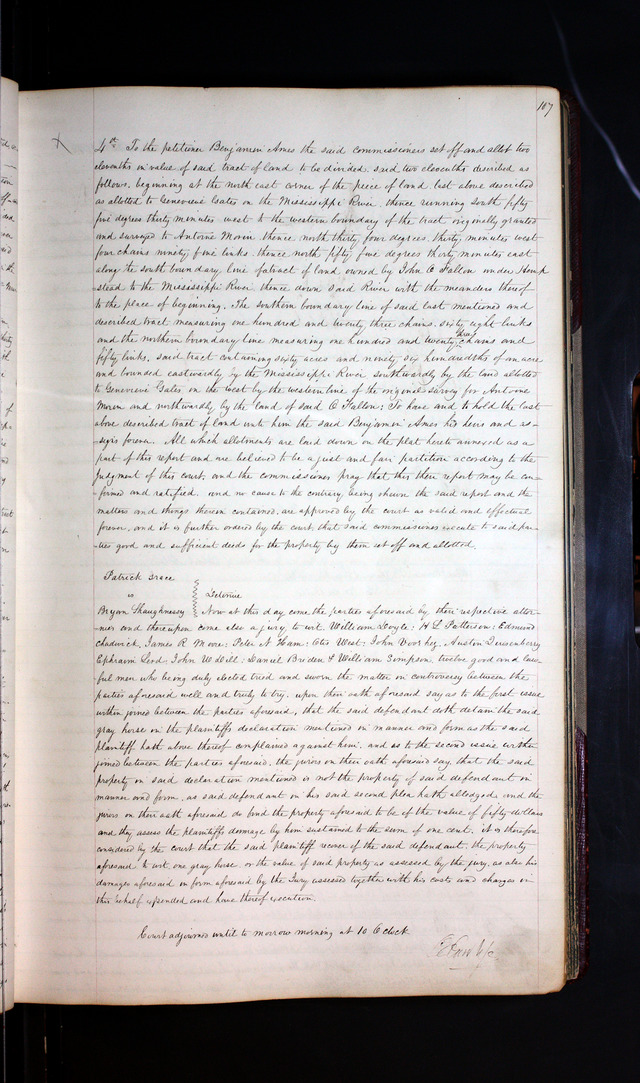 107
X
4th To the petitioner Benjamin Ames the said commissioners set off and allot two
elevenths in value of said tract of land to be divided. said two elevenths described as
follows. beginning at the north east corner of the piece of land last above described
as allotted to Genevieve Gates on the Mississippi River, thence running south fifty
five degrees thirty minutes west to the western boundary of the tract originally granted
and surveyed to Antoine Morin thence north thirty four degrees, thirty minutes west
four chains ninety five links. thence north fifty five degrees thirty minutes east
along the south boundary line of a tract of land owned by John O Fallon under Hemp
stead to the Mississippi River thence down said River with the meanders thereof
to the place of beginning. The southern boundary line of said last mentioned and
described tract measuring one hundred and twenty three chains. sixty eight links
and the northern boundary line measuring one hundred and twenty three chains and
fifty links. said tract containing sixty acres and ninety six hundredths of an acre
and bounded eastwardly by the Mississippi River southwardly by the land allotted
to Genevieve Gates on the west by the western line of the original survey for Antoine
Morin and northwardly by the land of said O Fallon; To have and to hold the last
above described tract of land unto him the said Benjamin Ames his heirs and as-
signs forever. All which allotments are laid down on the plat hereto annexed as a
part of this report and are believed to be a just and fair partition according to the
Judgment of this court. and the commissioners pray that this their report may be con-
firmed and ratified. and no cause to the contrary being shewn the said report and the
matters and things therein contained. are approved by the court as valid and effectual
forever. and it is further ordered by the court that said commissioners execute to said par-
ties good and sufficient deeds for the property by them set off and allotted.
Patrick Grace
vs Detinue
Bryan Shaughnessy Now at this day come the parties aforesaid by their respective attor-
nies and thereupon come also a jury, to wit, William Doyle; H L Patterson; Edmund
Chadwick, James R Moore; Peter A Ham; Otis West; John Voorhey, Austin Quisenberry
Ephraim Lord. John W Dill; Daniel Breden & William Simpson. twelve good and law-
ful men who being duly elected tried and sworn the matter in controversy between the
parties aforesaid well and truly to try. upon their oath aforesaid say as to the first issue
within joined between the parties aforesaid, that the said defendant doth detain the said
gray horse in the plaintiffs declaration mentioned in manner and form as the said
plaintiff hath above thereof complained against him. and as to the second issue within
joined between the parties aforesaid. the jurors on their oath aforesaid say, that the said
property in said declaration mentioned is not the property of said defendant in
manner and form, as said defendant in his said second plea hath alledged. and the
jurors on their oath aforesaid do find the property aforesaid to be of the value of fifty dollars
and they assess the plaintiffs damage by him sustained to the sum of one cent. it is therefore
considered by the court that the said plaintiff recover of the said defendant. the property
aforesaid to wit one gray horse or the value of said property as assessed by the jury. as also his
damages aforesaid in form aforesaid by the Jury assessed together with his costs and charges in
this behalf expended and have thereof execution.
Court adjourned until to morrow morning at 10 O clock